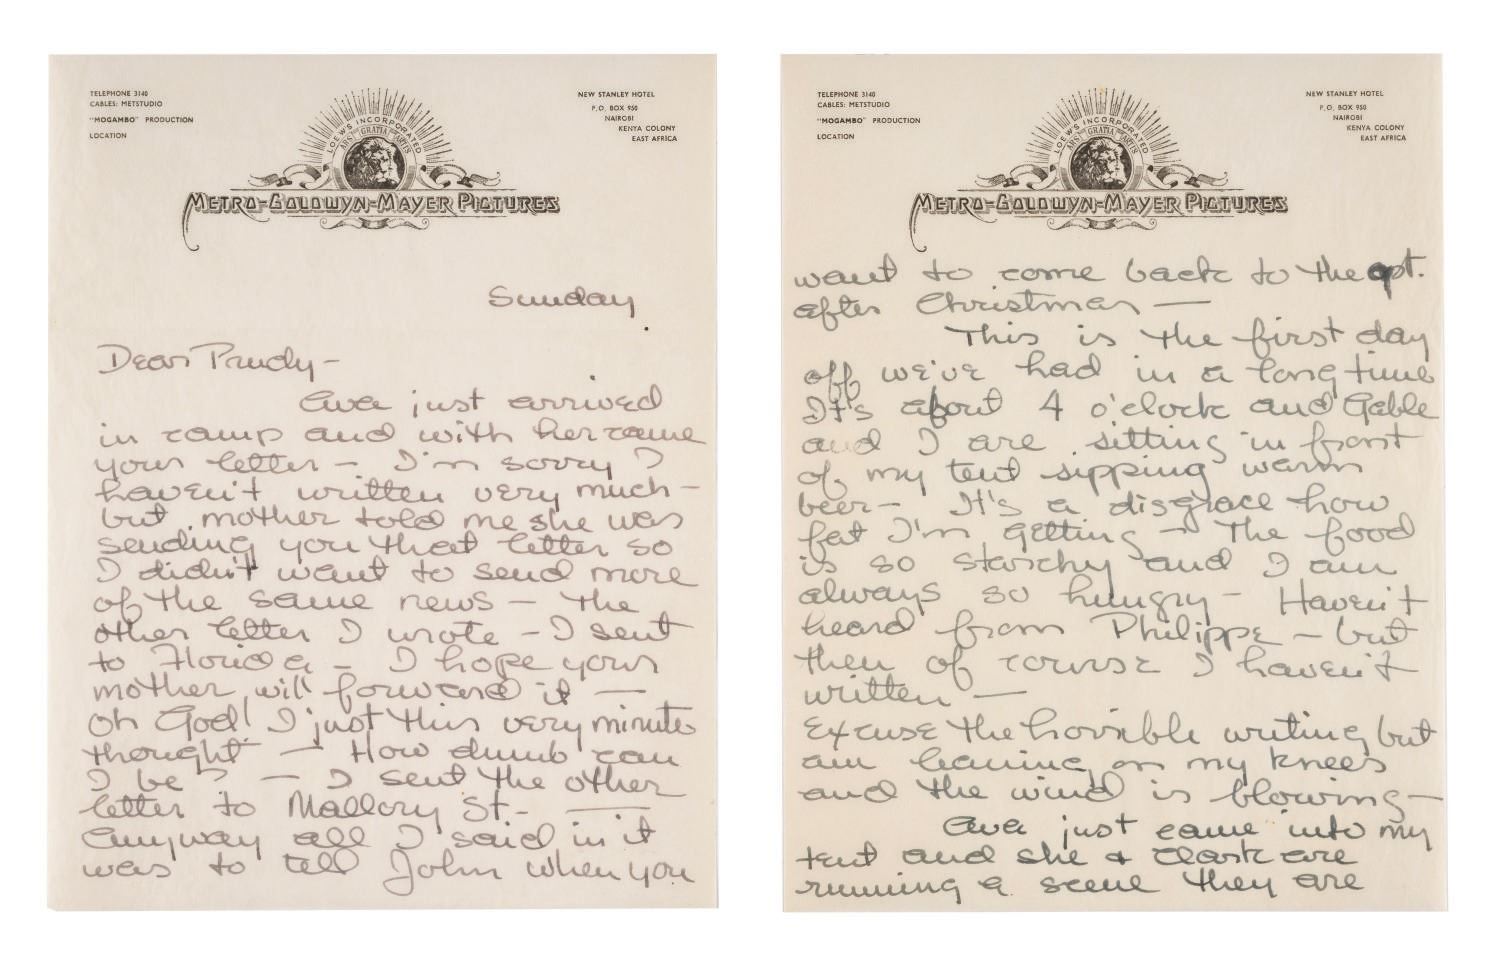 TELEPHONE 3140
CABLES: METSTUDIO
"MOGAMBO" PRODUCTION
LOCATION
NEW STANLEY HOTEL
P.O. BOX 950
NAIROBI
KENYA COLONY
EAST AFRICA
LOEW'S INCORPORATED
ARS GRATIA ARTIS
METRO-GOLDWYN-MAYER PICTURES
Sunday
Dear Prudy-
Ava just arrived
in camp and with her came
your letter - I'm sorry I
haven't written very much -
but mother told me she was
sending you that letter so
I didn't want to send more
of the same news - The
other letter I wrote - I sent
to Florida - I hope your
mother will forward it -
oh God! I just this very minute
thought - How dumb can
I be? - I sent the other
letter to Mallory St. -
Anyway all I said in it
was to tell John when you
TELEPHONE 3140
CABLES: METSTUDIO
"MOGAMBO" PRODUCTION
LOCATION
NEW STANLEY HOTEL
P.O. BOX 950
NAIROBI
KENYA COLONY
EAST AFRICA
LOEW'S INCORPORATED
ARS GRATIA ARTIS
METRO-GOLDWYN-MAYER PICTURES
want to come back to the apt.
after Christmas -
This is the first day
off we've had in a long time
It's about 4 o'clock and Gable
and I are sitting in front
of my tent sipping warm
beer - It's a disgrace how
fat I'm getting - The food
is so starchy and I am
always so hungry - Haven't
heard from Philippe - but
then of course I haven't
written -
Excuse the horrible writing but
am leaning on my knees
and the wind is blowing -
Ava just came into my
tent and she & Clark are
running a scene they are